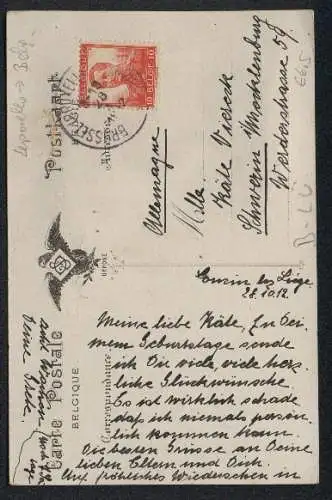 Postkaart
Carte Postale
BELGIQUE
Correspondance
DÉPOSÉ
10 BELGIE 10
Allemagne
Mlle.
Käte Viereck
Schwerin i/Mecklenburg
Werderstrasse 59
B-LU
28.10.12.
Meine liebe Käte, Zu Dei-
nem Geburtstage sende
ich Dir viele, viele herz-
liche Glückwünsche.
Es ist wirklich schade
daß ich niemals persön-
lich kommen kann.
Die besten Grüsse an Deine
lieben Eltern und Dich.
Auf fröhliches Wiedersehen in
Deine